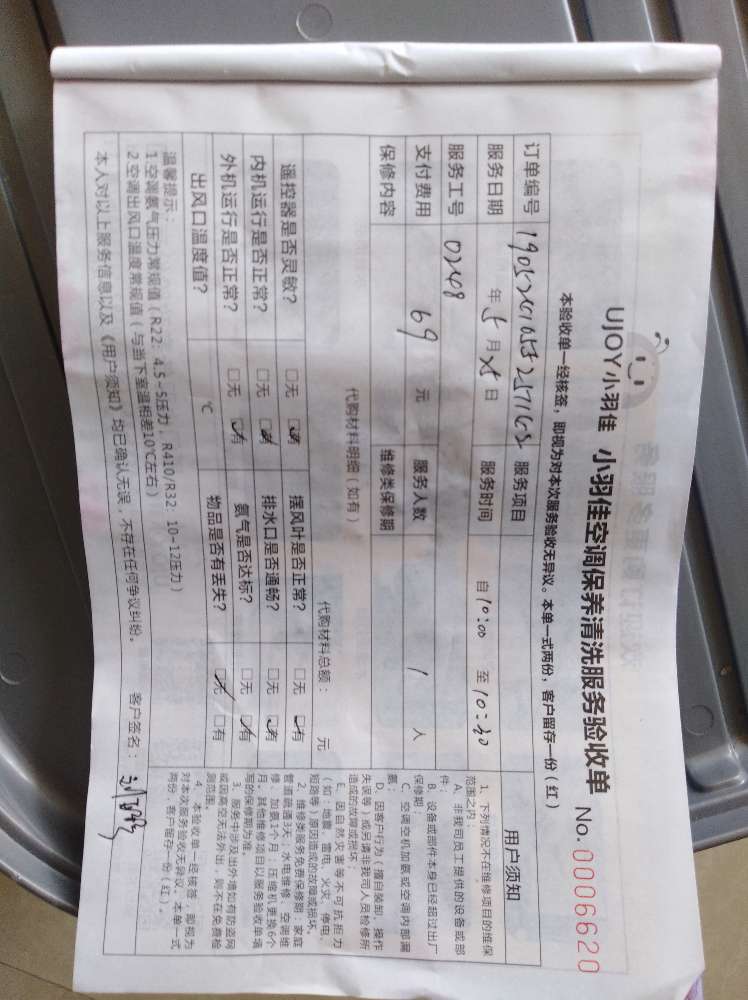 UJOY小羽佳 小羽佳空调保养清洗服务验收单 No.0006620
本验收单一经核签，即视为对本次服务验收无异议。本单一式两份，客户留存一份（红）
订单编号 服务项目
服务日期 年 5 月 25 日 服务时间 自 10:00 至 10:30
服务工号 0248
支付费用 69 元 服务人数 1 人
保修内容 维修类保修期
代购材料明细（如有） 代购材料总额： 元
遥控器是否灵敏？ □无 □有 摆风叶是否正常？ □无 □有
内机运行是否正常？ □无 □有 排水口是否通畅？ □无 □有
外机运行是否正常？ □无 □有 氨气是否达标？ □无 □有
出风口温度值？ ℃ 物品是否有丢失？ □无 □有
温馨提示：
1.空调氨气压力常规值（R22：4.5~5压力，R410/R32：10-12压力）
2.空调出风口温度常规值（与当下室温相差10℃左右）
本人对以上服务信息以及《用户须知》均已确认无误，不存在任何争议纠纷。 客户签名：
用户须知
1、下列情况不在维修项目的维保
范围之内：
A、非我司员工提供的设备或部
件；
B、设备或部件本身已经超过出厂
保修期；
C、空调空机加氨或空调内部漏
氨；
D、因客户行为（擅自装卸、操作
失误等）或另请非我司人员检修所
造成的故障或损坏；
E、因自然灾害等不可抗拒力
（如：地震、雷电、火灾、停电、
短路等）原因造成的故障或损坏。
2、维修类服务免费保修期：家庭
管道疏通3天；水电维修、空调维
修、加氨1个月；压缩机更换6个
月。其他维修项目以服务验收单填
写的保修期为准。
3、服务中涉及出外墙如有防盗网
或因高空无法外出，则不在免费检
测范围。
4、本验收单一经核签，即视为
对本次服务验收无异议，本单一式
两份，客户留存一份（红）。